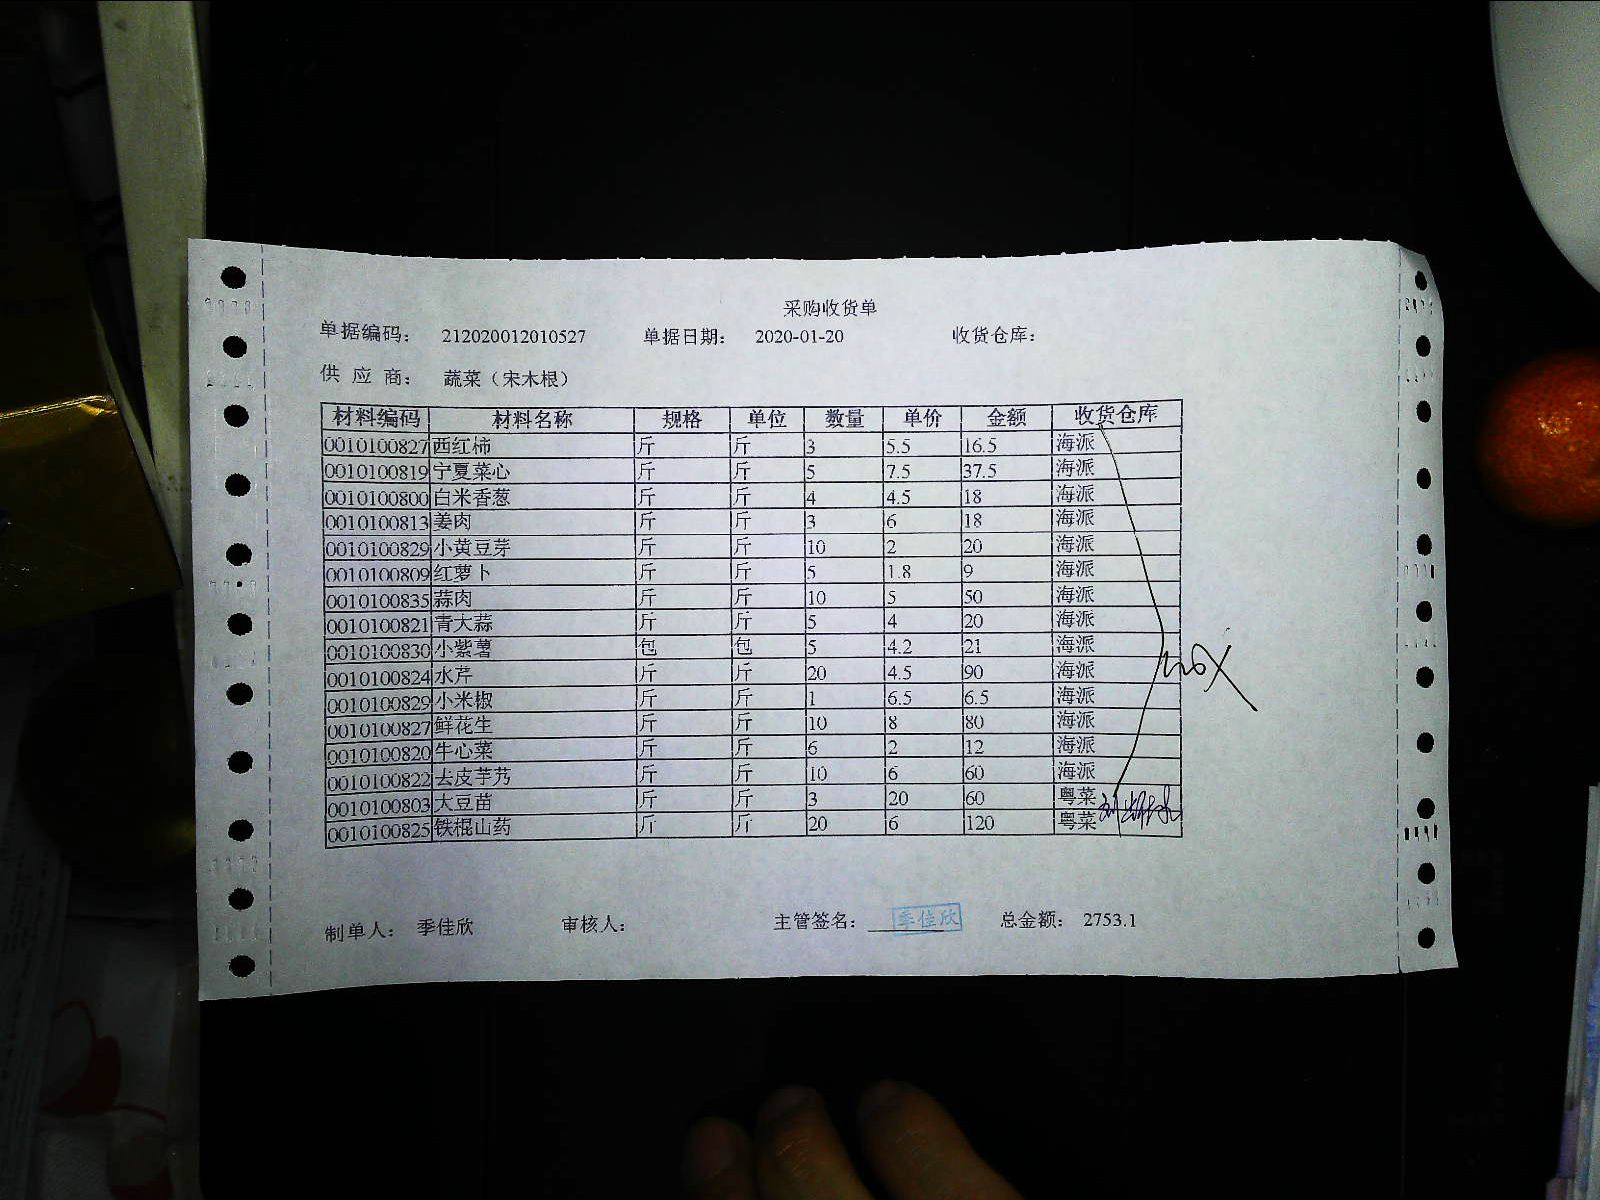 采购收货单
单据编码： 212020012010527 单据日期： 2020-01-20 收货仓库：
供 应 商： 蔬菜（宋木根）
材料编码 材料名称 规格 单位 数量 单价 金额 收货仓库
0010100827 西红柿 斤 斤 3 5.5 16.5 海派
0010100819 宁夏菜心 斤 斤 5 7.5 37.5 海派
0010100800 白米香葱 斤 斤 4 4.5 18 海派
0010100813 姜肉 斤 斤 3 6 18 海派
0010100829 小黄豆芽 斤 斤 10 2 20 海派
0010100809 红萝卜 斤 斤 5 1.8 9 海派
0010100835 蒜肉 斤 斤 10 5 50 海派
0010100821 青大蒜 斤 斤 5 4 20 海派
0010100830 小紫薯 包 包 5 4.2 21 海派
0010100824 水芹 斤 斤 20 4.5 90 海派
0010100829 小米椒 斤 斤 1 6.5 6.5 海派
0010100827 鲜花生 斤 斤 10 8 80 海派
0010100820 牛心菜 斤 斤 6 2 12 海派
0010100822 去皮芋艿 斤 斤 10 6 60 海派
0010100803 大豆苗 斤 斤 3 20 60 粤菜
0010100825 铁棍山药 斤 斤 20 6 120 粤菜
制单人： 季佳欣 审核人： 主管签名： 季佳欣 总金额： 2753.1